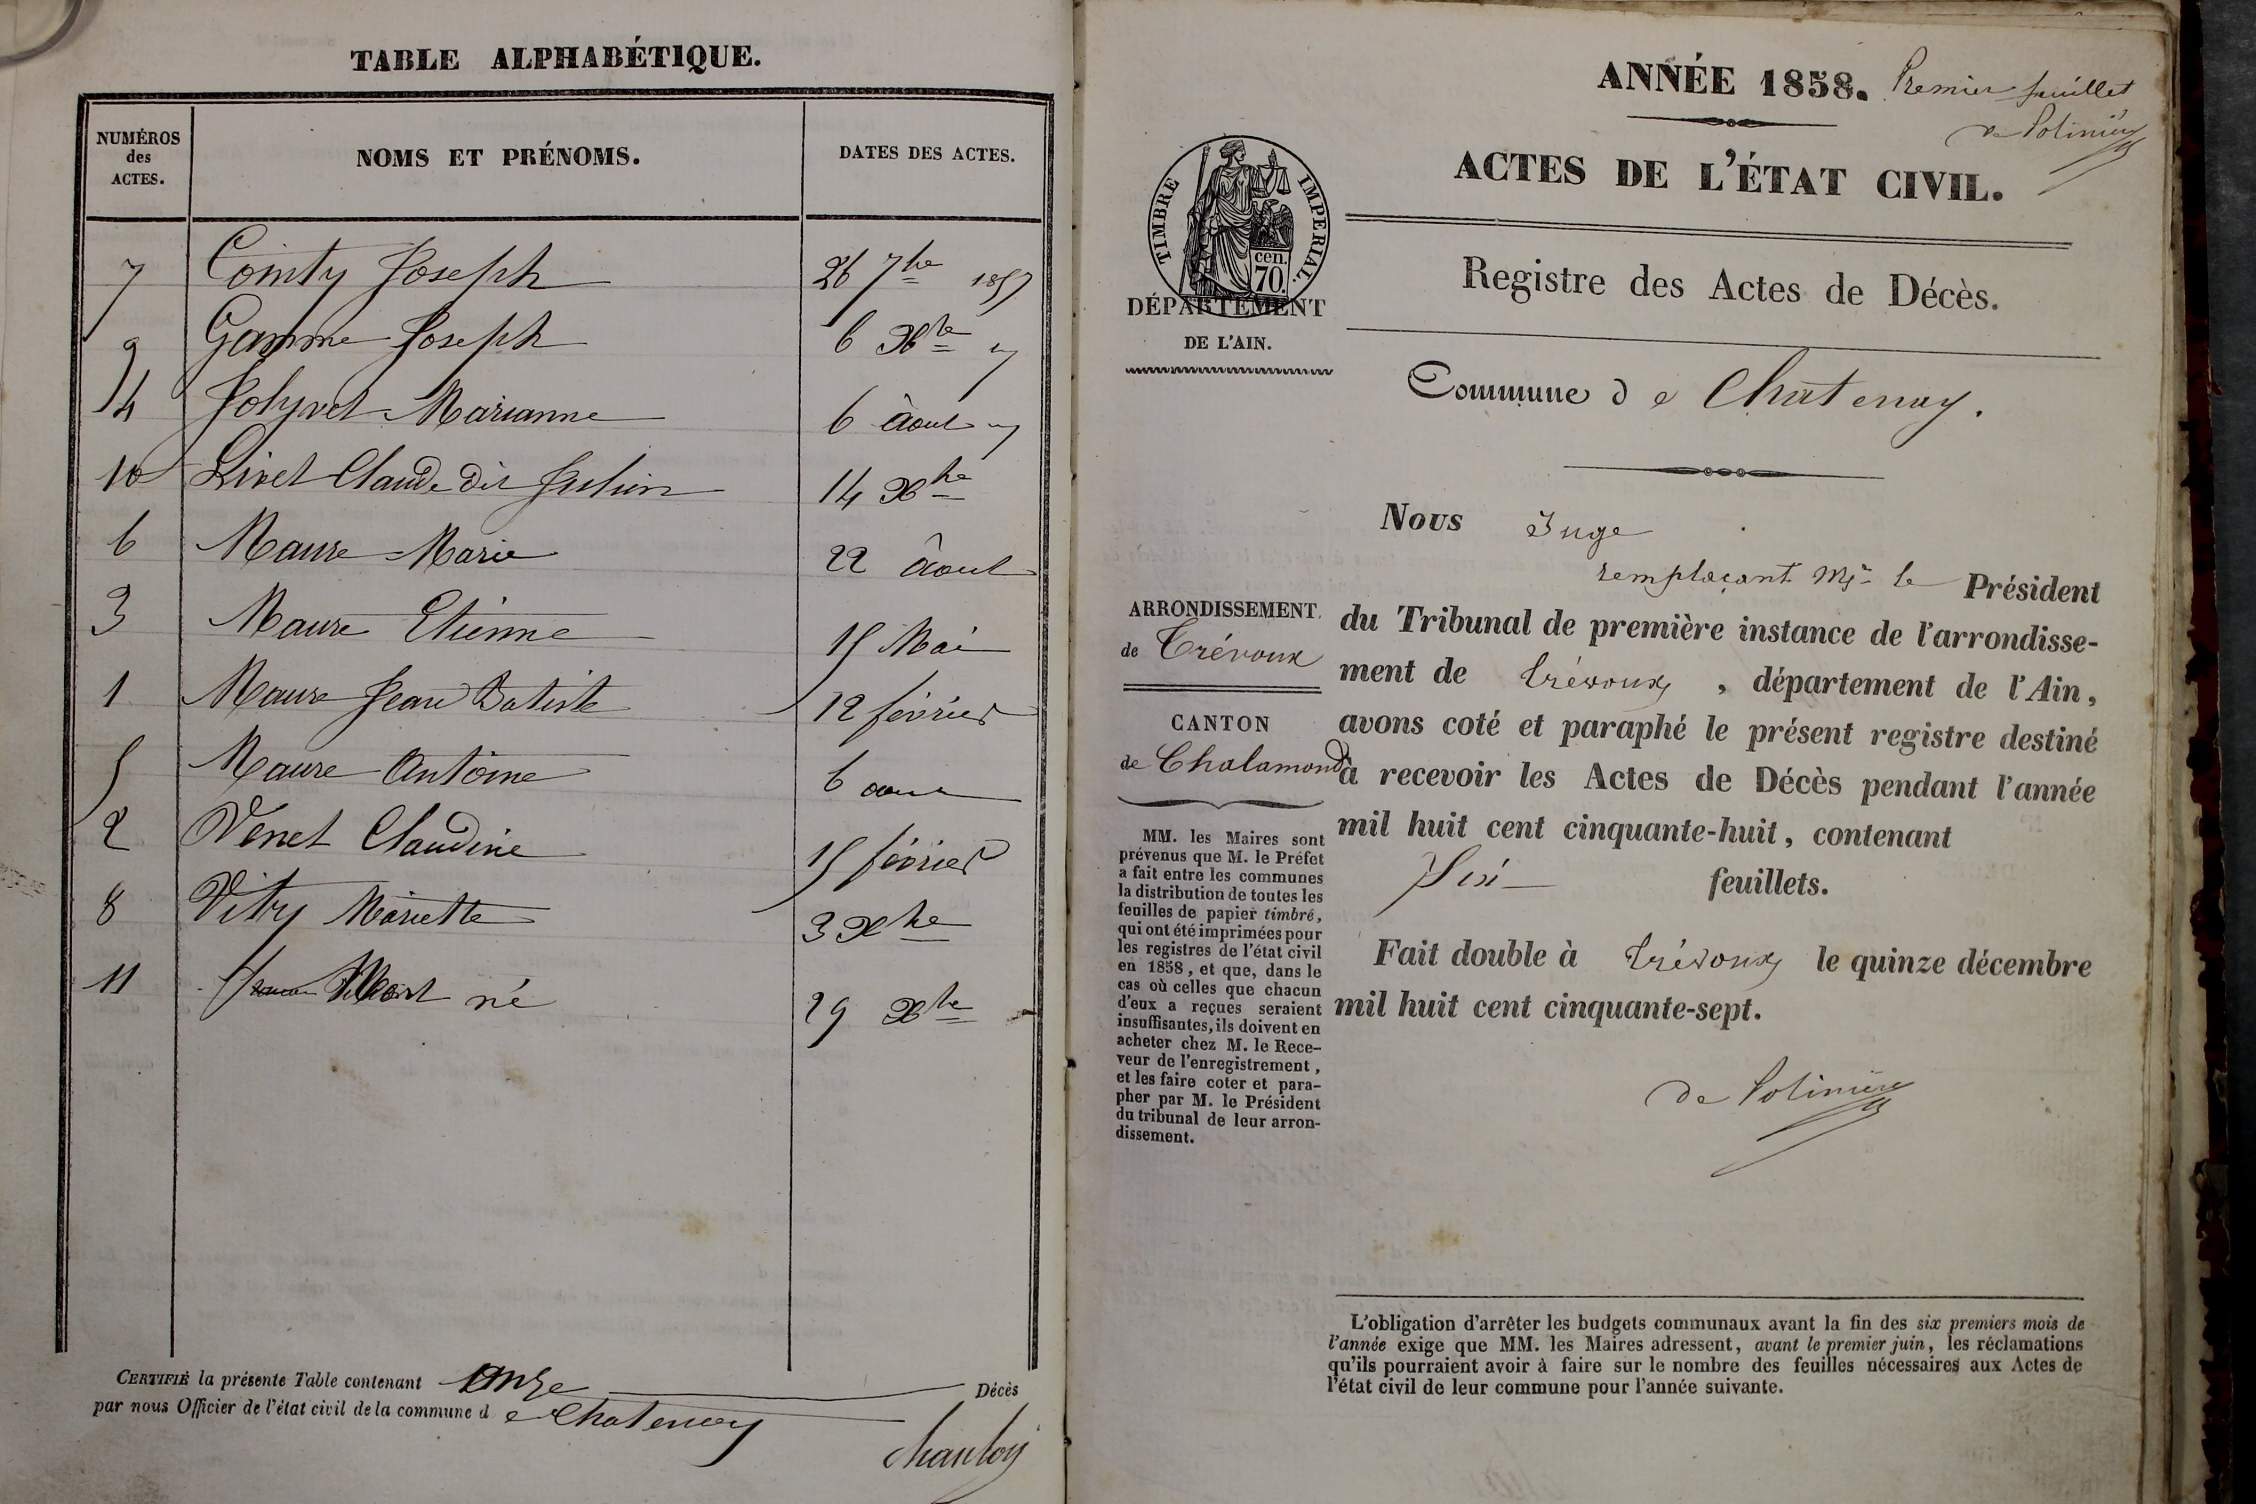 TABLE ALPHABÉTIQUE.
NUMÉROS des ACTES.
NOMS ET PRÉNOMS.
DATES DES ACTES.
7 Cointy Joseph 26 7bre 1857
9 Gamme Joseph 6 Xbre
4 Jolyvet Marianne 6 Août
10 Livet Claude dit Julien 14 Xbre
6 Maure Marie 22 Août
3 Maure Etienne 15 Mai
1 Maure Jean Batiste 12 février
5 Maure Antoine 6 aout
2 Venet Claudine 15 février
8 Vitry Mariette 3 Xbre
11 né 29 Xbre
CERTIFIÉ la présente Table contenant onze Décès
par nous Officier de l'état civil de la commune de Chatenay
ANNÉE 1858. Premier feuillet
de Polinière
ACTES DE L'ÉTAT CIVIL.
TIMBRE IMPERIAL.
cen.
70.
DÉPARTEMENT
DE L'AIN.
Registre des Actes de Décès.
Commune de Chatenay.
Nous Juge
remplaçant Mr le Président
du Tribunal de première instance de l'arrondisse-
ment de Trévoux, département de l'Ain,
avons coté et paraphé le présent registre destiné
à recevoir les Actes de Décès pendant l'année
mil huit cent cinquante-huit, contenant
Six feuillets.
Fait double à Trévoux le quinze décembre
mil huit cent cinquante-sept.
de Polinière
ARRONDISSEMENT
de Trévoux
CANTON
de Chalamond
MM. les Maires sont
prévenus que M. le Préfet
a fait entre les communes
la distribution de toutes les
feuilles de papier timbré,
qui ont été imprimées pour
les registres de l'état civil
en 1858, et que, dans le
cas où celles que chacun
d'eux a reçues seraient
insuffisantes, ils doivent en
acheter chez M. le Rece-
veur de l'enregistrement,
et les faire coter et para-
pher par M. le Président
du tribunal de leur arron-
dissement.
L'obligation d'arrêter les budgets communaux avant la fin des six premiers mois de
l'année exige que MM. les Maires adressent, avant le premier juin, les réclamations
qu'ils pourraient avoir à faire sur le nombre des feuilles nécessaires aux Actes de
l'état civil de leur commune pour l'année suivante.